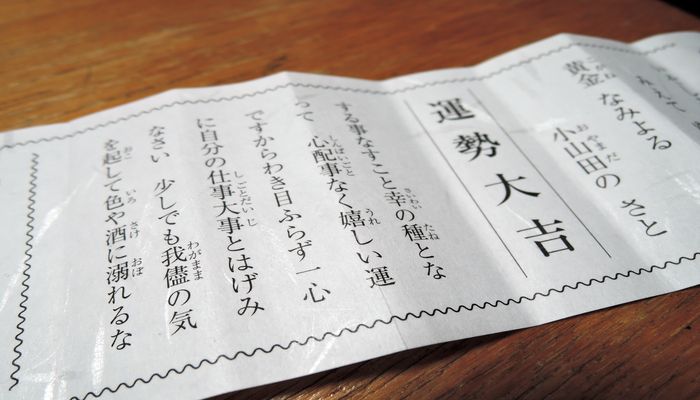 黄金なみよる
小山田の さと
運勢大吉
する事なすこと幸の種とな
って 心配事なく嬉しい運
ですからわき目ふらず一心
に自分の仕事大事とはげみ
なさい 少しでも我儘の気
を起して色や酒に溺れるな